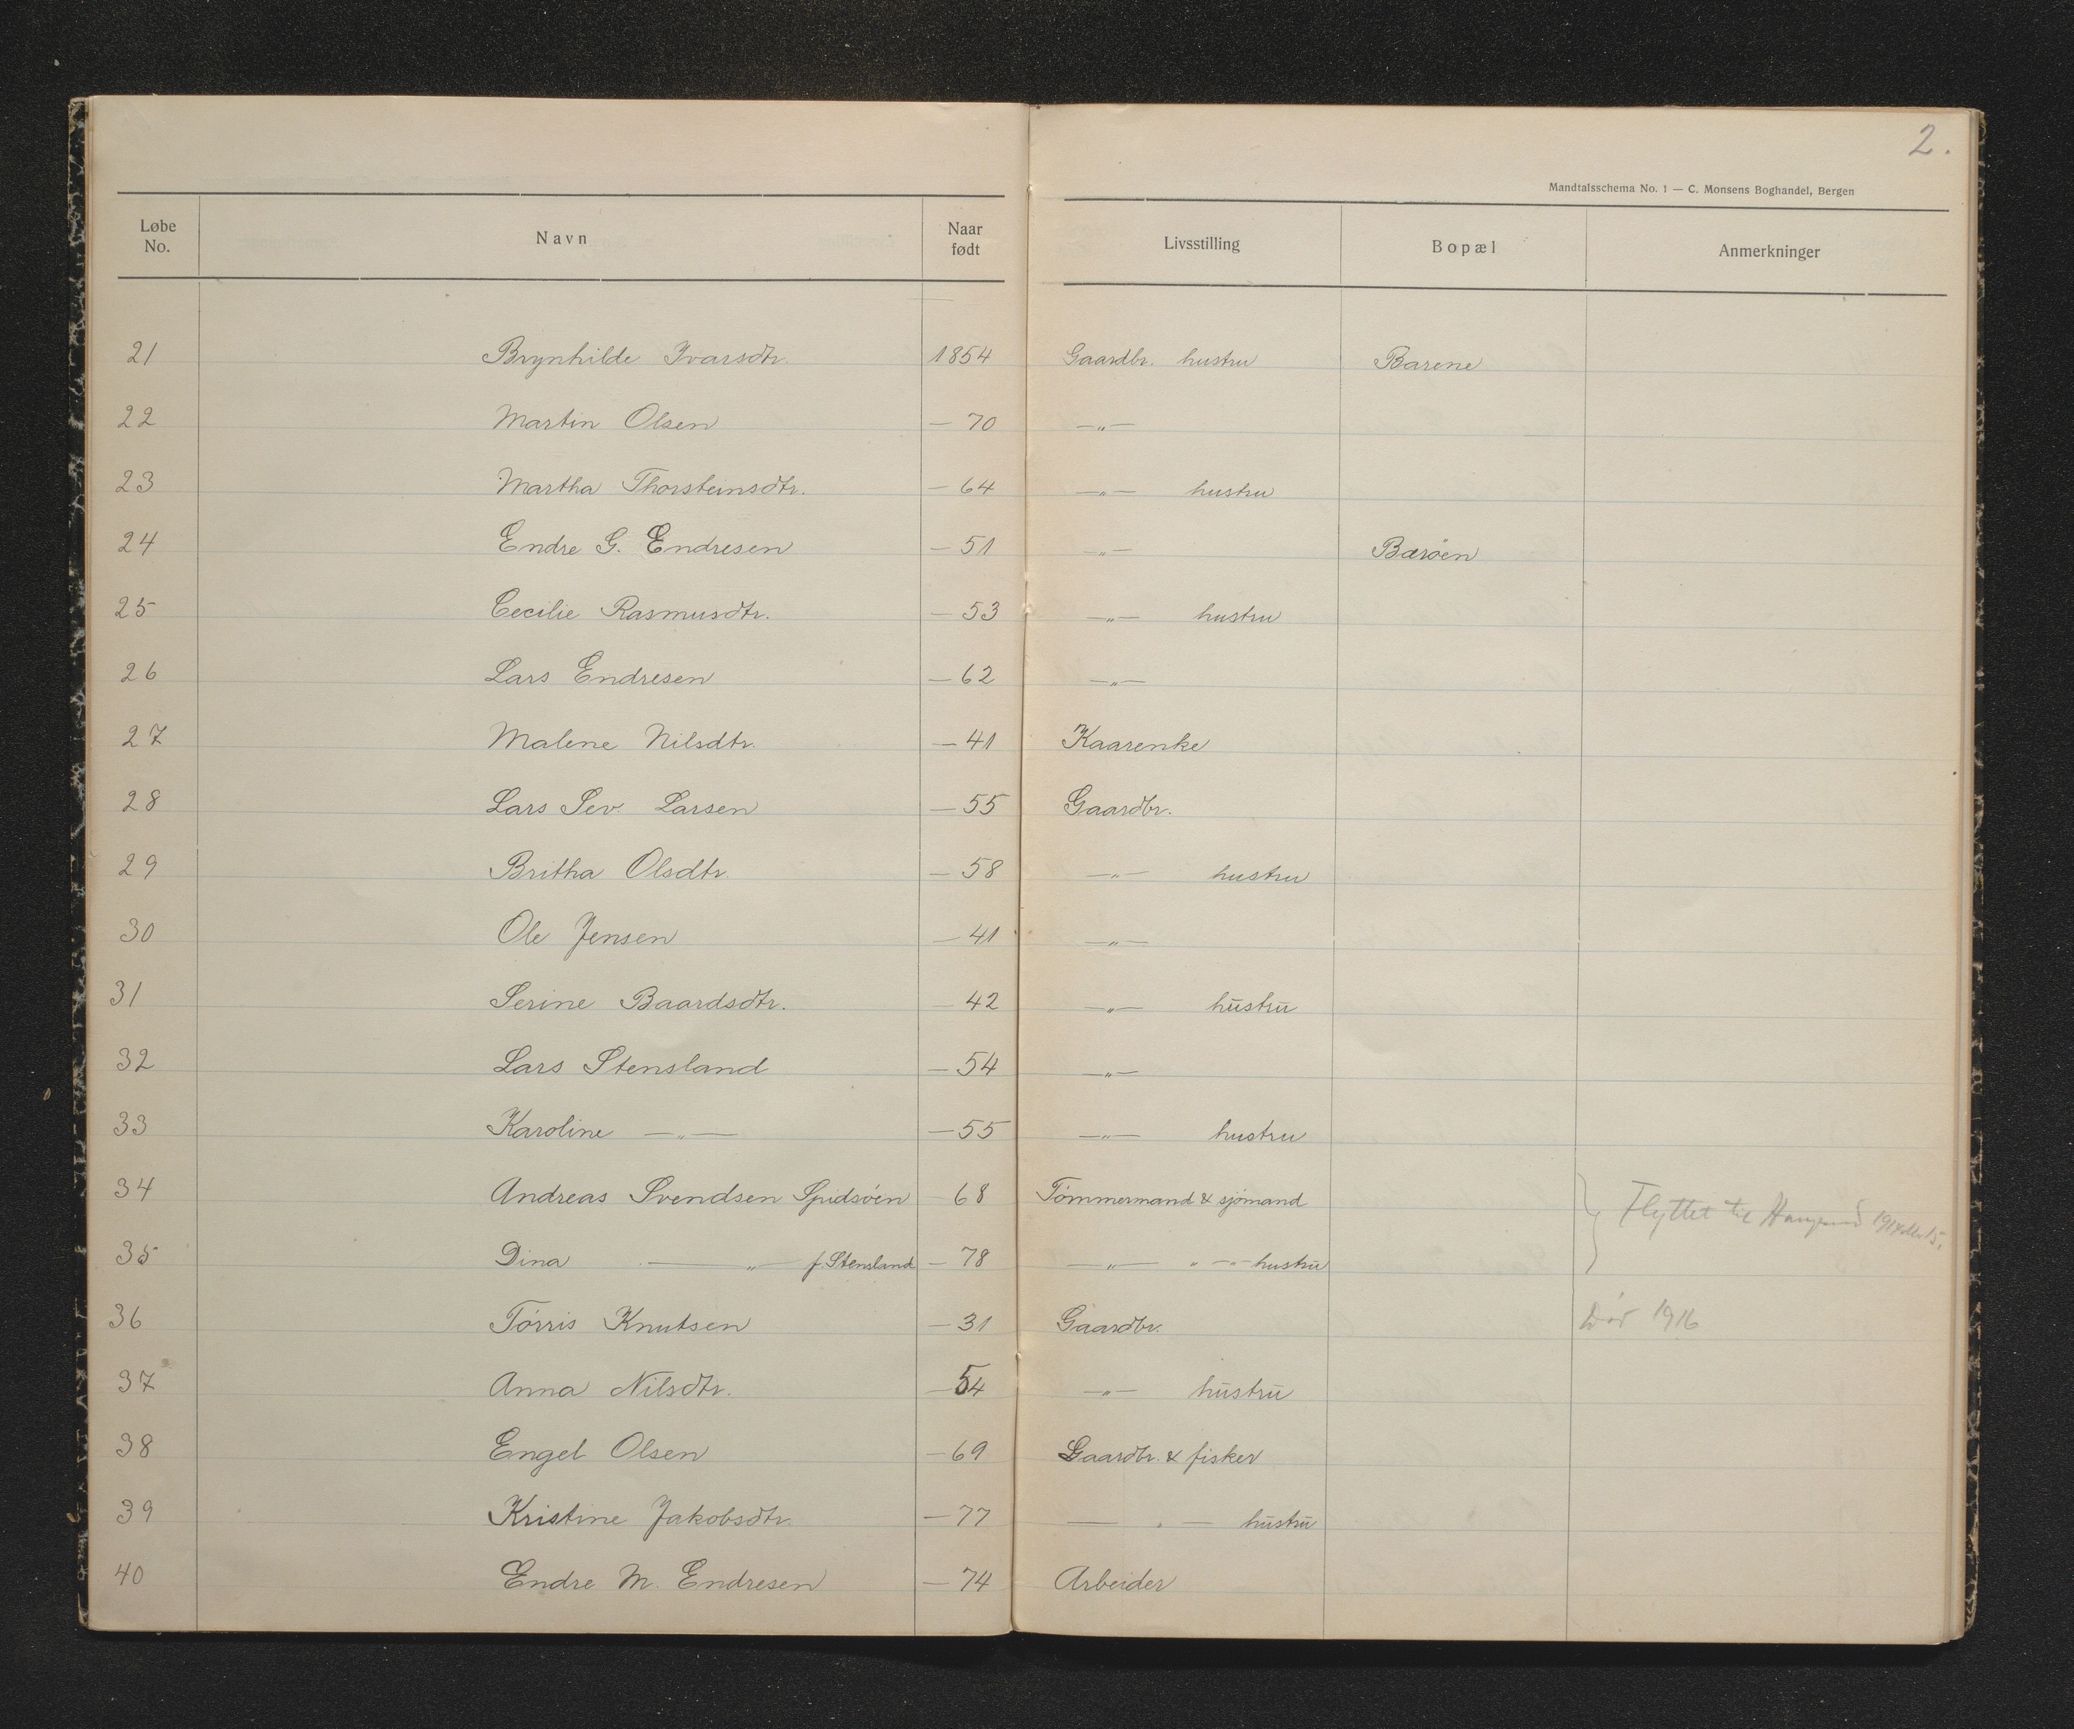 2.
Mandtalsschema No. 1 — C. Monsens Boghandel, Bergen
Løbe No. Navn Naar født Livsstilling Bopæl Anmerkninger
21 Brynhilde Ivarsdtr. 1854 Gaardbr. hustru Barene
22 Martin Olsen — 70 —„—
23 Martha Thorsteinsdtr. — 64 —„— hustru
24 Endre G. Endresen — 51 —„— Barøen
25 Cecilie Rasmusdtr. — 53 —„— hustru
26 Lars Endresen — 62 —„—
27 Malene Nilsdtr. — 41 Kaarenke
28 Lars Sev. Larsen — 55 Gaardbr.
29 Britha Olsdtr. — 58 —„— hustru
30 Ole Jensen — 41 —„—
31 Serine Baardsdtr. — 42 —„— hustru
32 Lars Stensland — 54 —„—
33 Karoline —„— — 55 —„— hustru
34 Andreas Svendsen Spidsöen — 68 Tömmermand & sjömand Flyttet til
35 Dina —„— f. Stensland — 78 —„— „ —„— hustru
36 Törris Knutsen — 31 Gaardbr. Död 1916
37 Anna Nilsdtr. — 54 —„— hustru
38 Engel Olsen — 69 Gaardbr. & fisker
39 Kristine Jakobsdtr. — 77 —„— hustru
40 Endre M. Endresen — 74 Arbeider